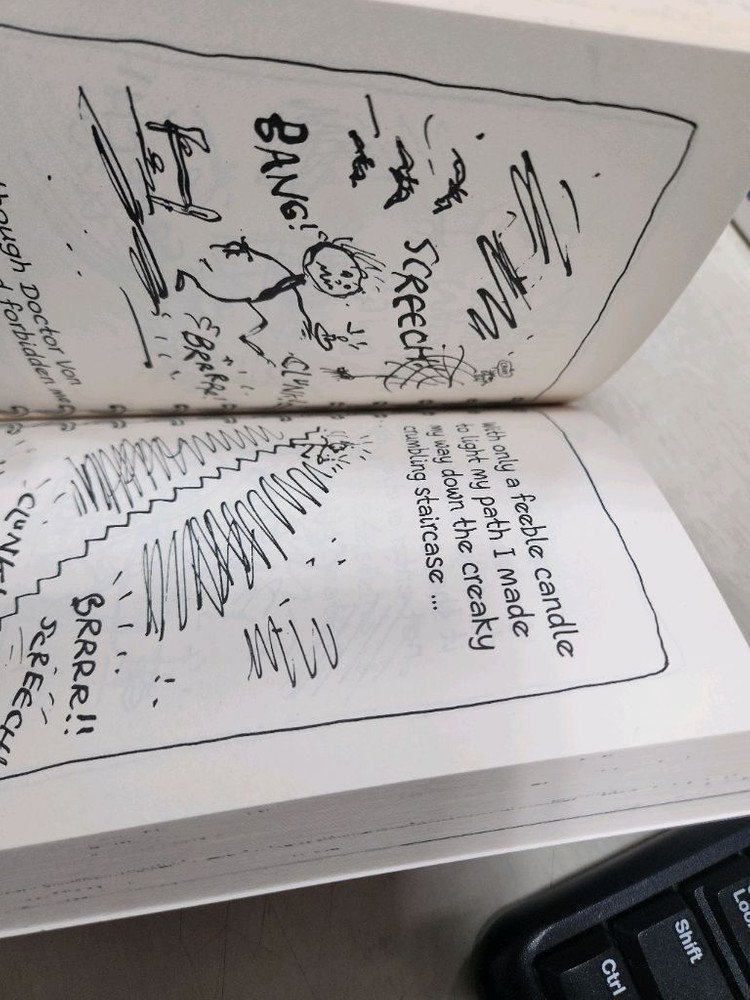 SCREECH
BANG!
CLUNK!
BRRRR!
though Doctor Von
forbidden
with only a feeble candle
to light my path I made
my way down the creaky
crumbling staircase ...
CLUNK!
BRRRR!!
SCREECH!
Shift
Ctrl